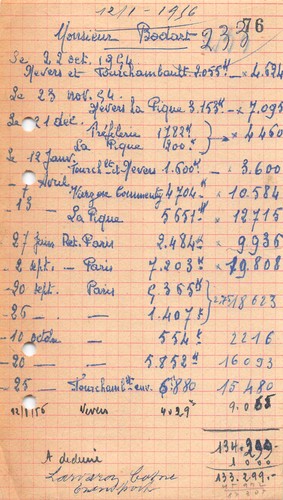 12/1-1956
76
Monsieur Bodart 232
Le 22 oct. 1954
Nevers et Fourchambault 2.055 - × 4.624
Le 23 nov. 54
Nevers la Pique 3.153 - × 7.095
Le 21 déc.
Préfilerie 1782
La Pique 200 × 4460
Le 12 Janv.
Fourch et Nevers 1.600 - × 3.600
7 Avril
Vierzon Commentry 4704 × 10.584
13 -
La Pique 5651 × 12715
27 Juin Ret. Paris 2.484 9936
2 sept. - Paris 7.203 × 19.808
20 sept. Paris 5365
26 - 1.407 2.75/18623
10 octobre - 554 2216
20 - - 5.852 16093
25 - Fourchamb env. 6880 15480
12/1/56 Nevers 4029 9.065
134.299
A déduire 1.000
133.299.-